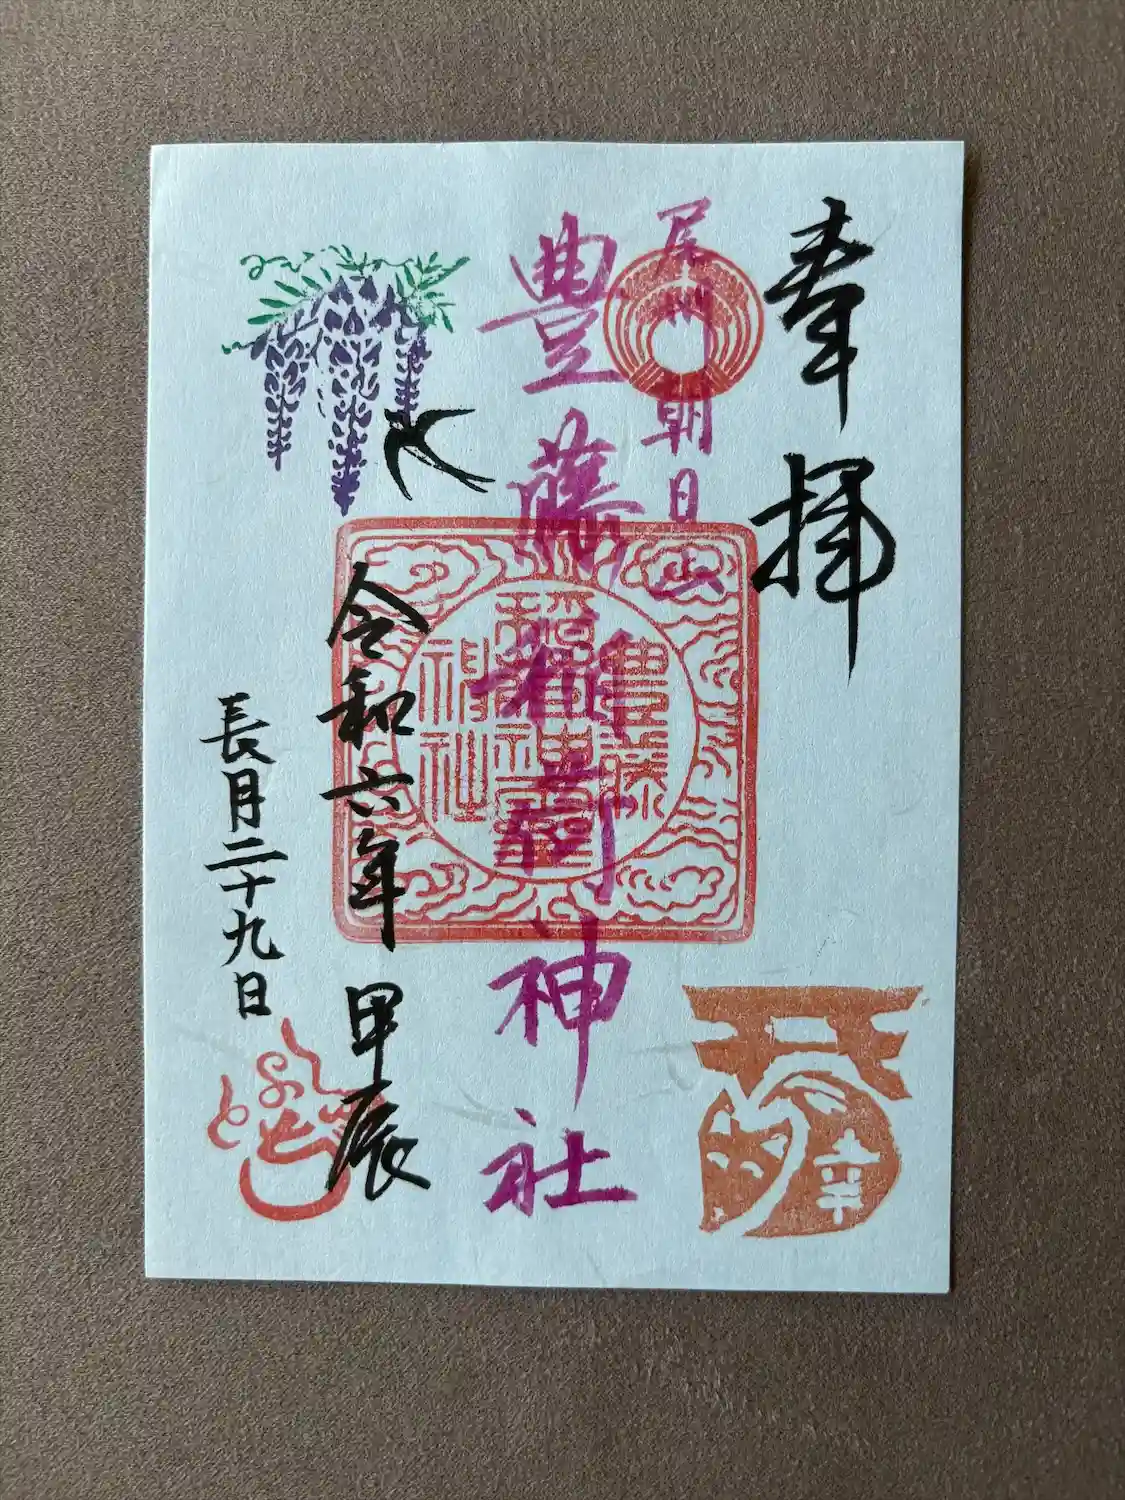 奉拝
尾州朝日山
豊藤稲荷神社
豊藤
稲荷
神社
令和六年 甲辰
長月二十九日